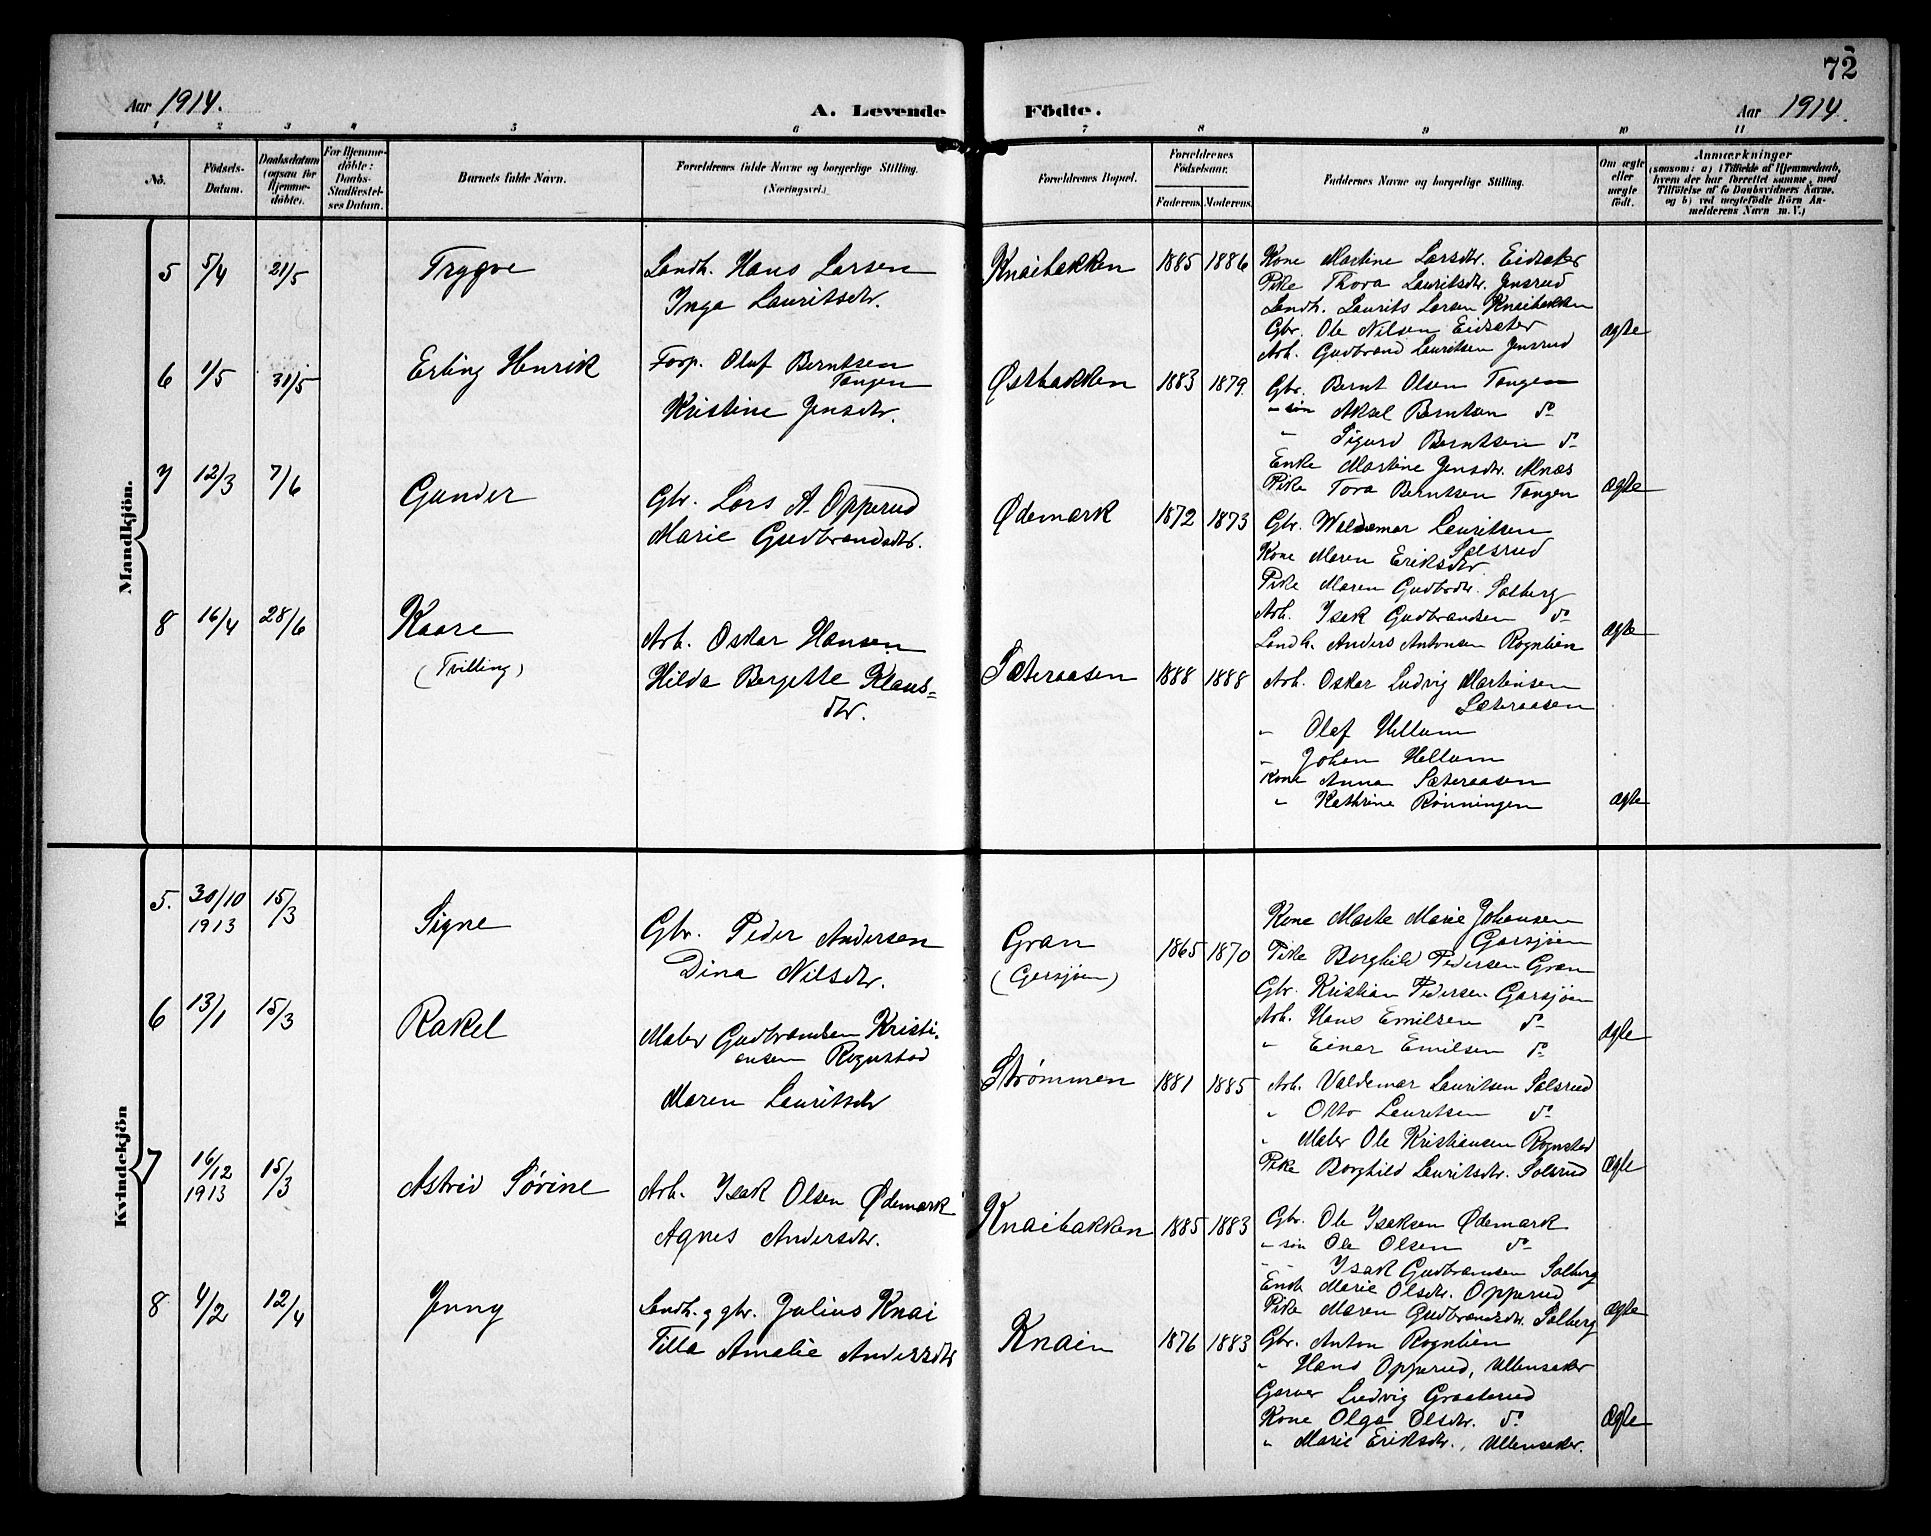 72
Aar 1914.
A. Levende Födte.
Aar 1914.
1 2 3 4 5 6 7 8 9 10 11
No.
Födsels-Datum.
Daabsdatum (ogsaa for Hjemmedöbte).
For Hjemmedöbte: Daabs-Stadfestelses Datum.
Barnets fulde Navn.
Forældrenes fulde Navne og borgerlige Stilling. (Næringsvei.)
Forældrenes Bopæl.
Forældrenes Födselsaar.
Faderens. Moderens.
Faddernes Navne og borgerlige Stilling.
Om ægte eller uægte födt.
Anmærkninger
(saasom: a) i Tilfælde af Hjemmedaab, hvem der har forrettet samme, med Tilföielse af to Daabsvidners Navne. og b) ved uægtefödte Börn Anmelderens Navn m. V.)
Mandkjön.
5 5/4 21/5 Trygve
Landh. Hans Larsen
Inga Lauritsdtr.
Knaibakken 1885 1886
Kone Martine Larsdtr. Eidsæter
Pike Thora Lauritsdtr. Jensrud
Landh. Laurits Larsen Knaibakken
Gbr. Ole Nilsen Eidsæter
Arb. Gudbrand Lauritsen Jensrud
ægte
6 1/5 31/5 Erling Henrik
Forp. Oluf Berntsen
Tangen
Kristine Jensdtr.
Østbakken 1883 1879.
Gbr. Bernt Olsen Tangen
" søn Aksel Berntsen do
" Sigurd Berntsen do
Enke Martine Jensdtr. Alnæs
Pike Tora Berntsen Tangen
ægte
7 12/3 7/6 Gunder
Gbr. Lars A. Opperud
Marie Gudbrandsdtr.
Ødemark 1872 1873
Gbr. Waldemar Lauritsen
Solsrud
Kone Maren Eriksdtr
Pike Maren Gudbrdtr. Solberg
Arb. Isak Gudbrandsen do
Landh. Anders Antonsen Rognlien
ægte
8 16/4 28/6 Kaare
(Tvilling)
Arb. Oskar Hansen
Hilda Bergette Klaus=
dtr.
Sæteraasen 1888 1888
Arb. Oskar Ludvig Martinsen
Sæteraasen
" Olaf Hellum
" Johan Hellum
Kone Anna Sæteraasen
" Kathrine Rønningen
ægte
Kvindekjön
5. 30/10 1913 15/3 Signe
Gbr. Peder Andersen
Dina Nilsdtr.
Gran
(Garsjøen)
1865 1870
Kone Marte Marie Johansen
Garsjøen
Pike Borghild Pedersen Gran
Gbr. Kristian Pedersen Garsjøen
Arb. Hans Emilsen do
" Einar Emilsen do
ægte
6 13/1 15/3 Rakel
Maler Gudbrandsen Kristi-
ansen Rognstad
Maren Lauritsdtr
Strømmen 1881 1885
Arb. Valdemar Lauritsen Solsrud
" Otto Lauritsen do
" Maler Ole Kristiansen Rognstad
Pike Borghild Lauritsdtr. Solsrud
ægte
7 16/12 1913 15/3 Astrid Sørine
Arb. Isak Olsen Ødemark
Agnes Andersdtr.
Knaibakken 1885 1883
Gbr. Ole Isaksen Ødemark
" søn Ole Olsen do
" " Isak Gudbrandsen Solberg
Enke Marie Olsdtr. Opperud
Pike Maren Gudbrandsdtr. Solberg
ægte
8 4/2 12/4 Jenny
Landh. og gbr. Julius Knai
Tilla Amalie Andersdtr
Knain 1876 1883
Gbr. Anton Rognlien
" Hans Opperud, Ullensaker
Garver Ludvig Graaterud
Kone Olga Olsdtr. do
" Marie Eriksdtr., Ullensaker.
ægte